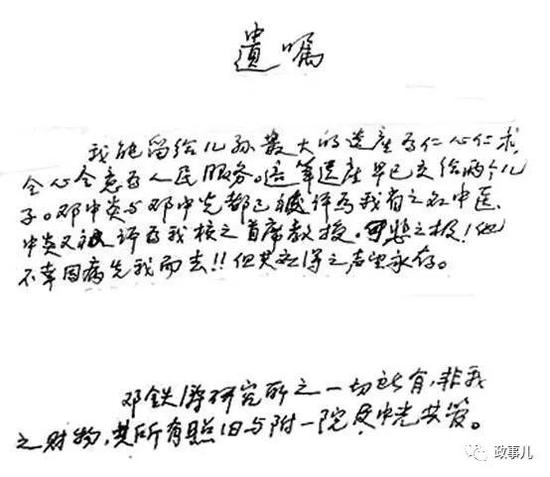 遗嘱
我能留给儿孙最大的遗产为仁心仁术,
全心全意为人民服务。这笔遗产早已交给两个儿
子。邓中炎与邓中光都已被评为我省之名中医、
中炎又被评为我校之首席教授。可悲之极!他
不幸因病先我而去!!但其医德之声望永存。
邓铁涛研究所之一切所有,非我
之财物,其所有照旧与附一院及中光共管。
政事儿